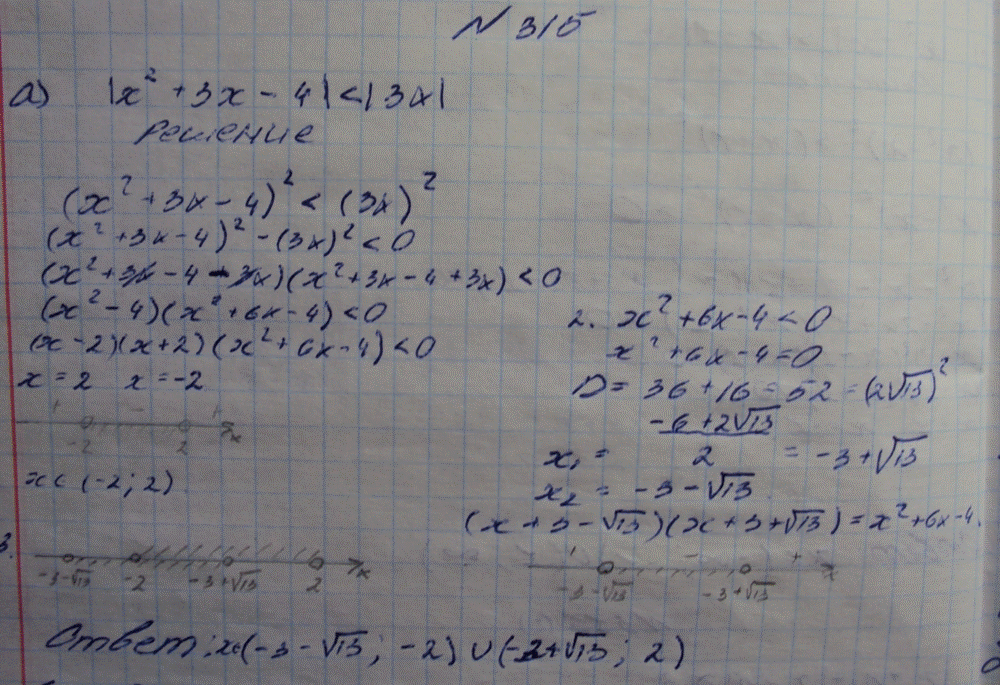 N 315
а) |x² + 3x - 4| < |3x|
Решение
(x² + 3x - 4)² < (3x)²
(x² + 3x - 4)² - (3x)² < 0
(x² + 3x - 4 - 3x)(x² + 3x - 4 + 3x) < 0
(x² - 4)(x² + 6x - 4) < 0
(x - 2)(x + 2)(x² + 6x - 4) < 0
x = 2 x = -2
+ - +
-2 2 x
x ∈ (-2; 2)
2. x² + 6x - 4 < 0
x² + 6x - 4 = 0
D = 36 + 16 = 52 = (2√13)²
x₁ = (-6 + 2√13)/2 = -3 + √13
x₂ = -3 - √13
(x + 3 - √13)(x + 3 + √13) = x² + 6x - 4.
+ - +
-3 - √13 -3 + √13 x
3.
-3 - √13 -2 -3 + √13 2 x
Ответ: x∈(-3 - √13; -2) ∪ (-3 + √13; 2)